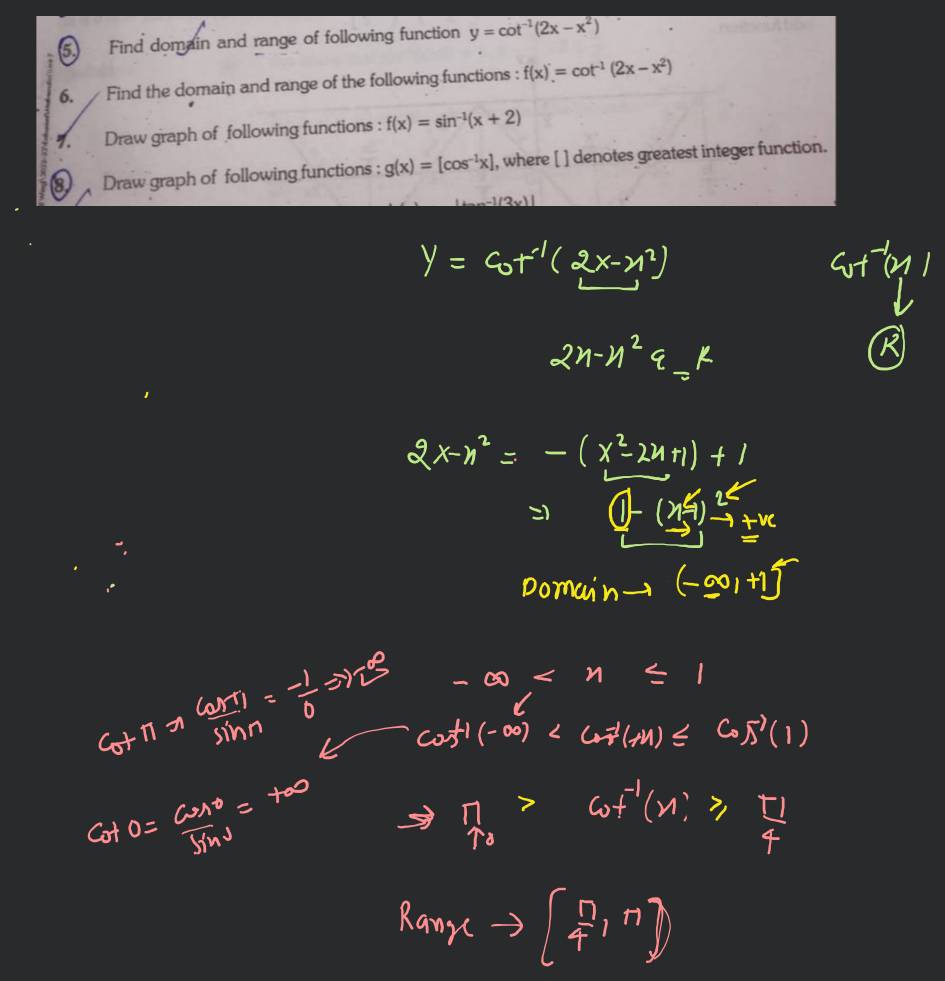 5. Find domain and range of following function y = cot⁻¹(2x – x²)
6. Find the domain and range of the following functions : f(x) = cot⁻¹ (2x – x²)
7. Draw graph of following functions : f(x) = sin⁻¹(x + 2)
8. Draw graph of following functions : g(x) = [cos⁻¹x], where [ ] denotes greatest integer function.
Y = cot⁻¹(2x-x²) cot⁻¹(x)
2x-x² ε R R
2x-x² = -(x²-2x+1)+1
⇒ 1-(x-1)² → +ve
Domain → (-∞, +1]
cot π ⇒ cosπ/sinπ = -1/0 ⇒ -∞ -∞ < x ≤ 1
cot⁻¹(-∞) < cot⁻¹(+x) ≤ cot⁻¹(1)
cot 0 = cos0/sin0 = +∞ ⇒ π > cot⁻¹(x) ≥ π/4
Range → [π/4, π)